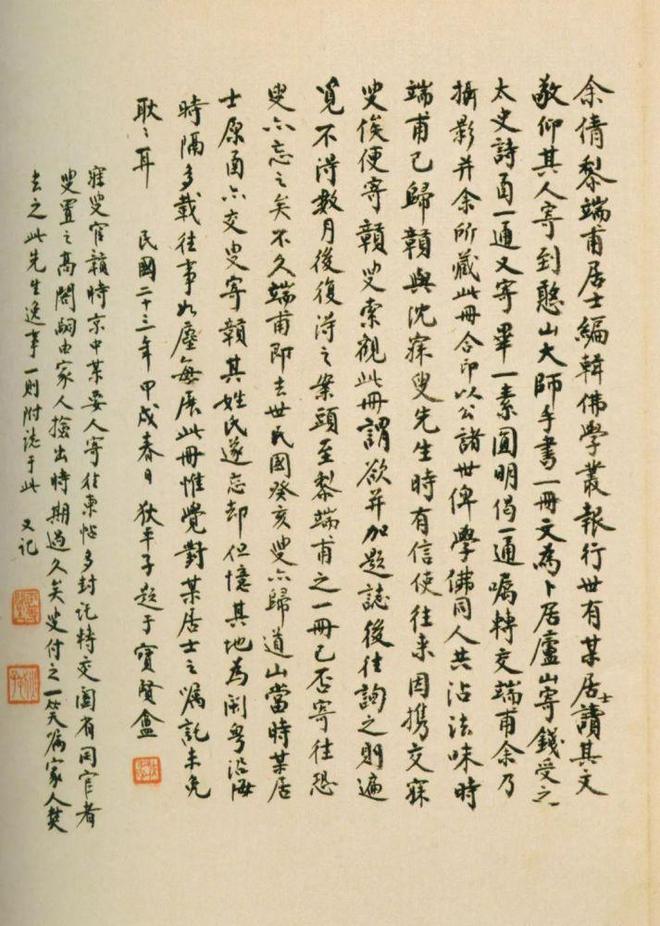 余倩黎端甫居士編輯佛學叢報行世有某居士讀其文
敬仰其人寄到憨山大師手書一冊文為卜居廬山寄錢受之
太史詩函一通又寄畢一素圓明偈一通囑轉交端甫余乃
攝影并余所藏此冊合印以公諸世俾學佛同人共沾法味時
端甫已歸贛與沈寐叟先生時有信使往来因攜交寐
叟俟便寄贛叟索觀此冊謂欲并加題誌後往詢之則遍
覓不得數月後復得之案頭至黎端甫之一冊已否寄往恐
叟亦忘之矣不久端甫即去世民國癸亥叟亦歸道山當時某居
士原函亦交叟寄贛其姓氏遂忘却但憶其地為閩粤沿海
時隔多載往事如塵每展此冊惟覺對某居士之囑託未免
耿〻耳 民國二十三年甲戌春日狄平子題于寶賢盦
寐叟官贛時京中某要人寄往柬帖多封託轉交閤省同官者
叟置之高閣嗣由家人撿出時期過久矣叟付之一笑囑家人焚
去之此先生逸事一則附誌于此 又記